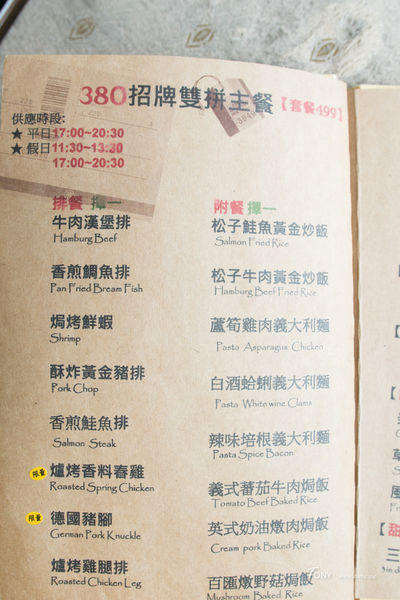 380招牌雙拼主餐【套餐499】
供應時段:
★ 平日17:00~20:30
★ 假日11:30~13:30
17:00~20:30
排餐 擇一
牛肉漢堡排
Hamburg Beef
香煎鯛魚排
Pan Fried Bream Fish
焗烤鮮蝦
Shrimp
酥炸黃金豬排
Pork Chop
香煎鮭魚排
Salmon Steak
限量 爐烤香料春雞
Roasted Spring Chicken
限量 德國豬腳
German Pork Knuckle
爐烤雞腿排
Roasted Chicken Leg
附餐 擇一
松子鮭魚黃金炒飯
Salmon Fried Rice
松子牛肉黃金炒飯
Hamburg Beef Fried Rice
蘆筍雞肉義大利麵
Pasta Asparagus Chicken
白酒蛤蜊義大利麵
Pasta White wine Clams
辣味培根義大利麵
Pasta Spice Bacon
義式蕃茄牛肉焗飯
Tomato Beef Baked Rice
英式奶油燉肉焗飯
Cream pork Baked Rice
百匯燉野菇焗飯
Mushroom Baked Rice